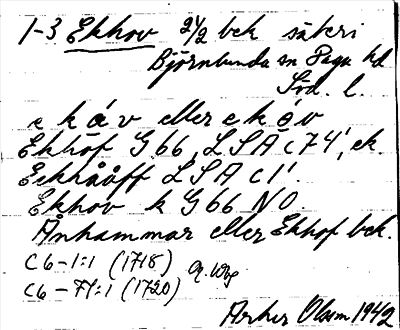 1-3 Ekhov 2 1/2 bek säteri
Björnlunda sn Daga hd
Söd. l.
e k á v eller e k ó v
Ekhof G 66, LSA C74', ek.
Eckhååff LSA C1'.
Ekhov k G 66 NO.
Ånhammar eller Ekhof bek.
C6-1:1 (1718)
C6-71:1 (1720)
Arthur Olsson 1942